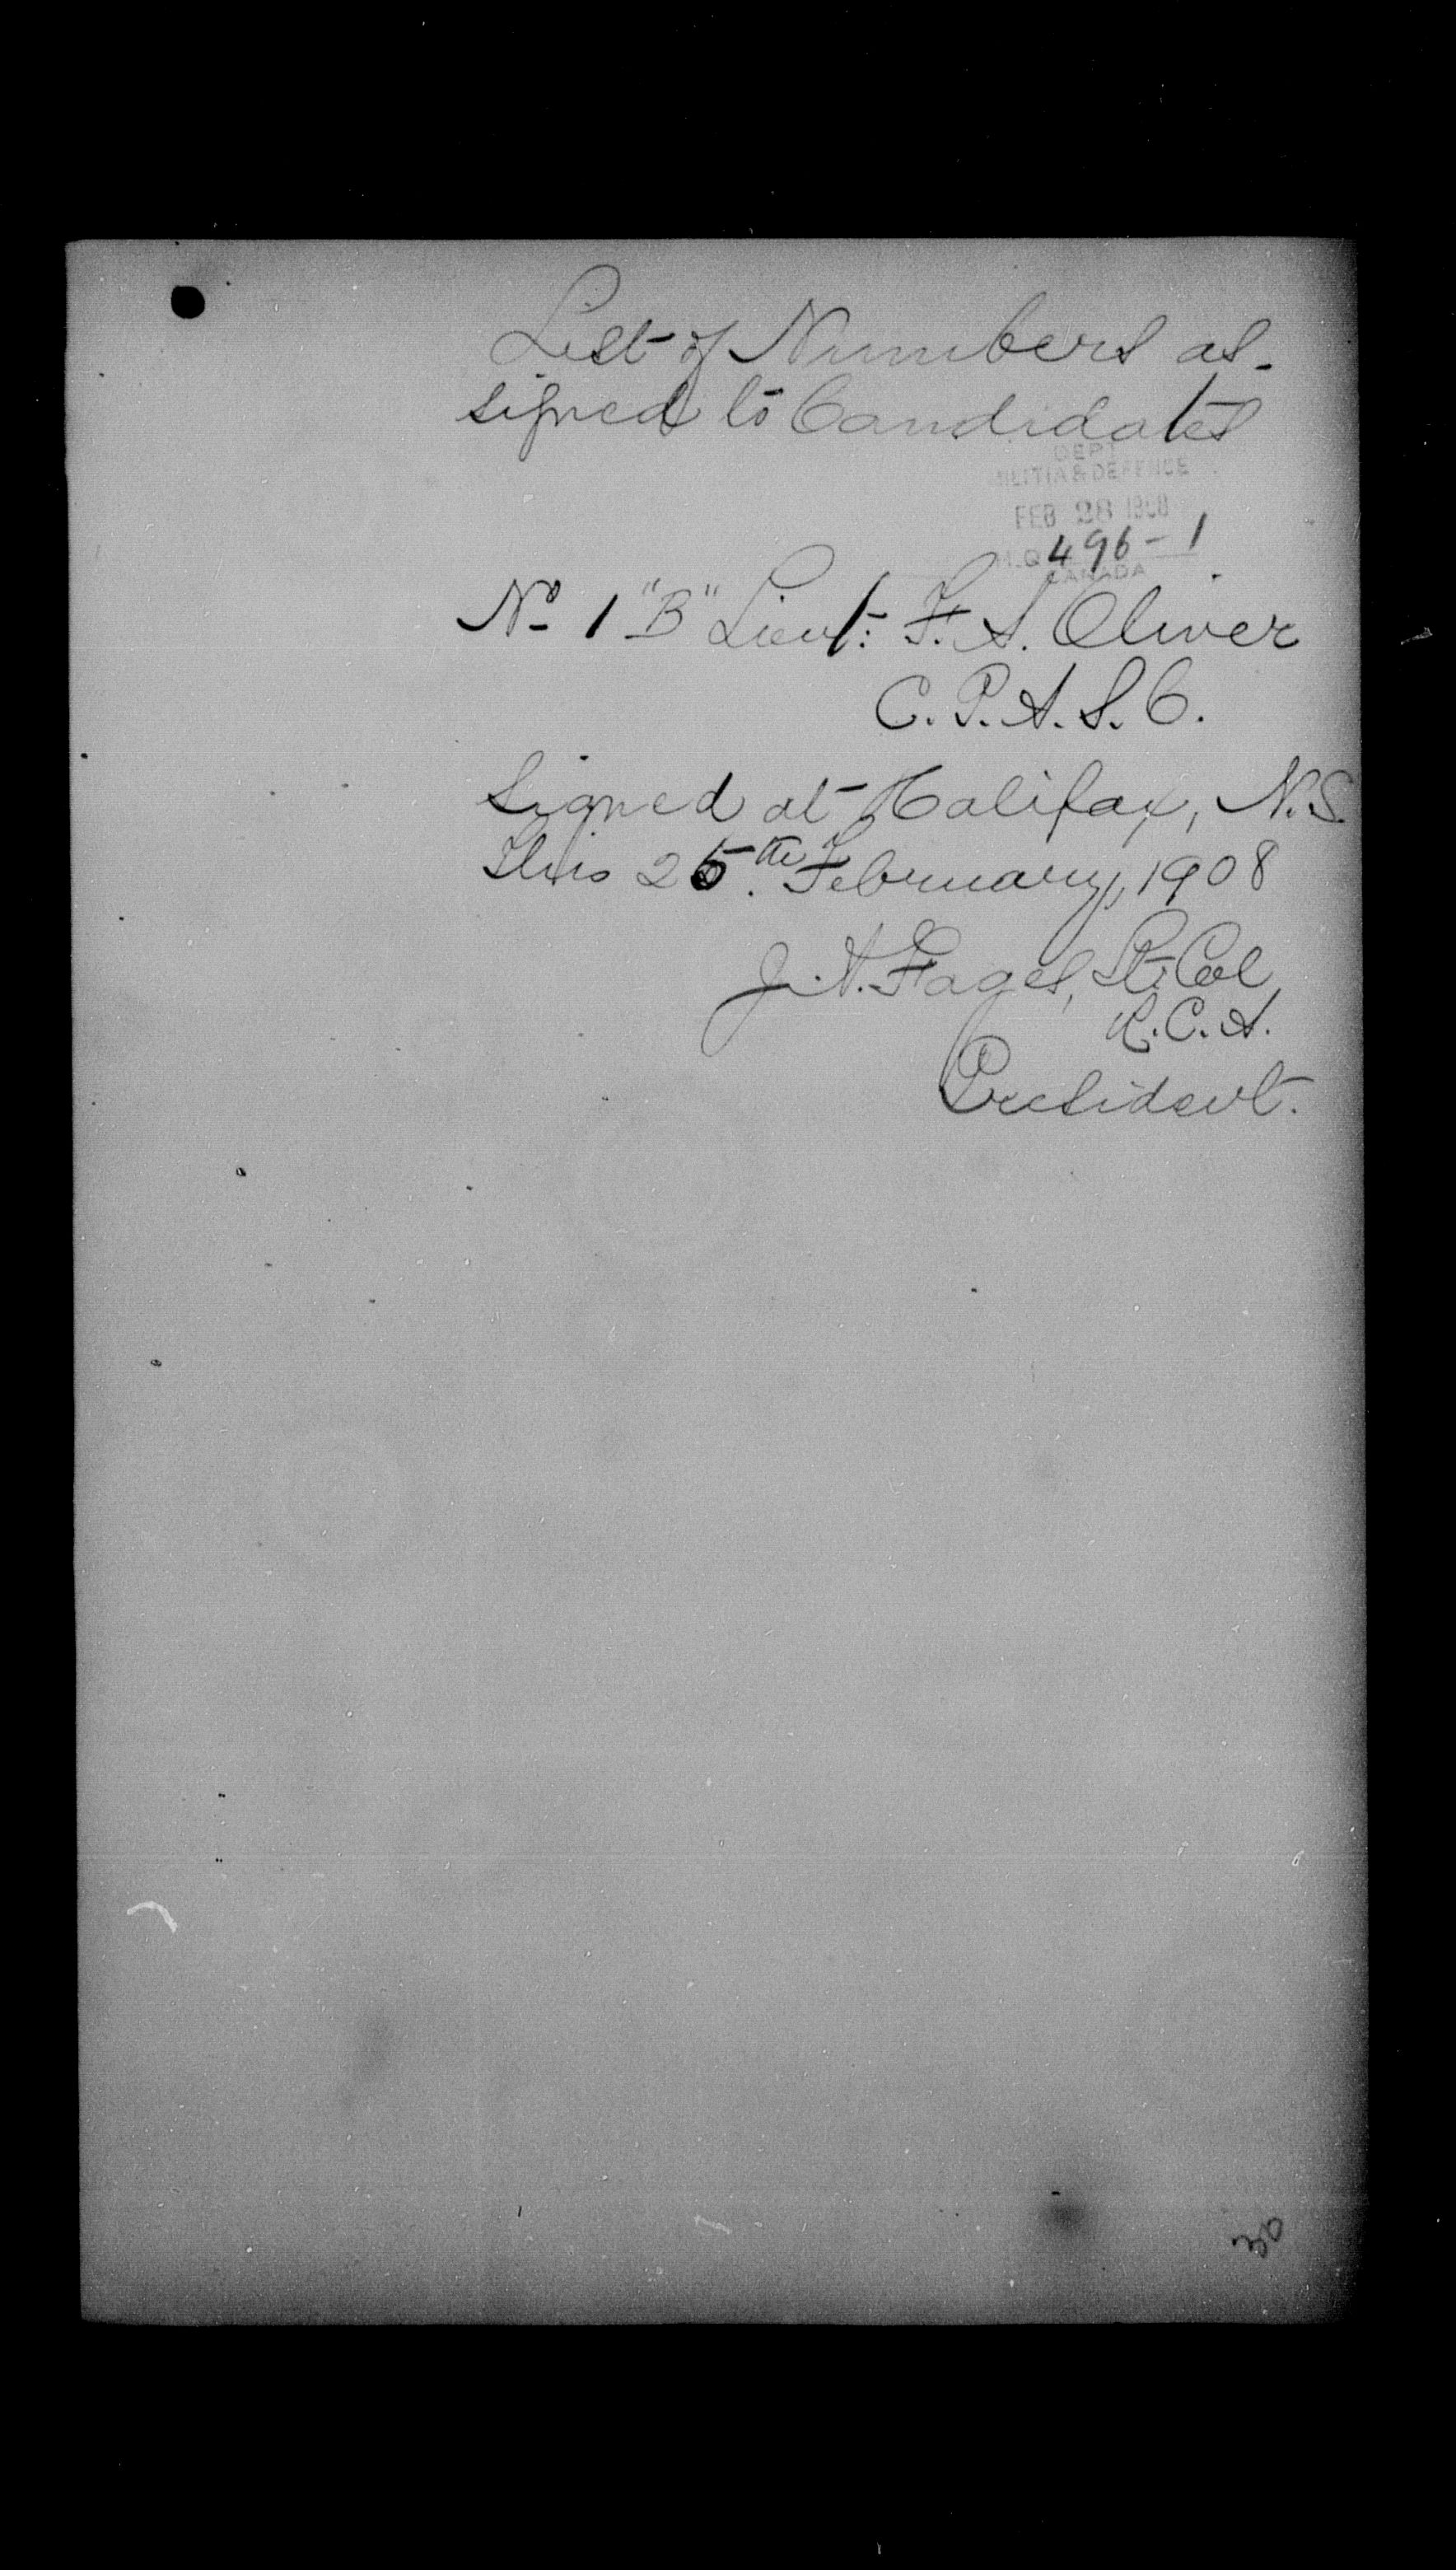 List of Numbers as-
signed to Candidates
DEPT
MILITIA & DEFENCE
FEB 28 1908
H.Q. 496-1
CANADA
No 1 "B" Lieut: F. A. Oliver
C. P. A. S. C.
Signed at Halifax, N.S.
This 25th. February, 1908
J. A. Fages, Lt. Col
R. C. A.
President.
30